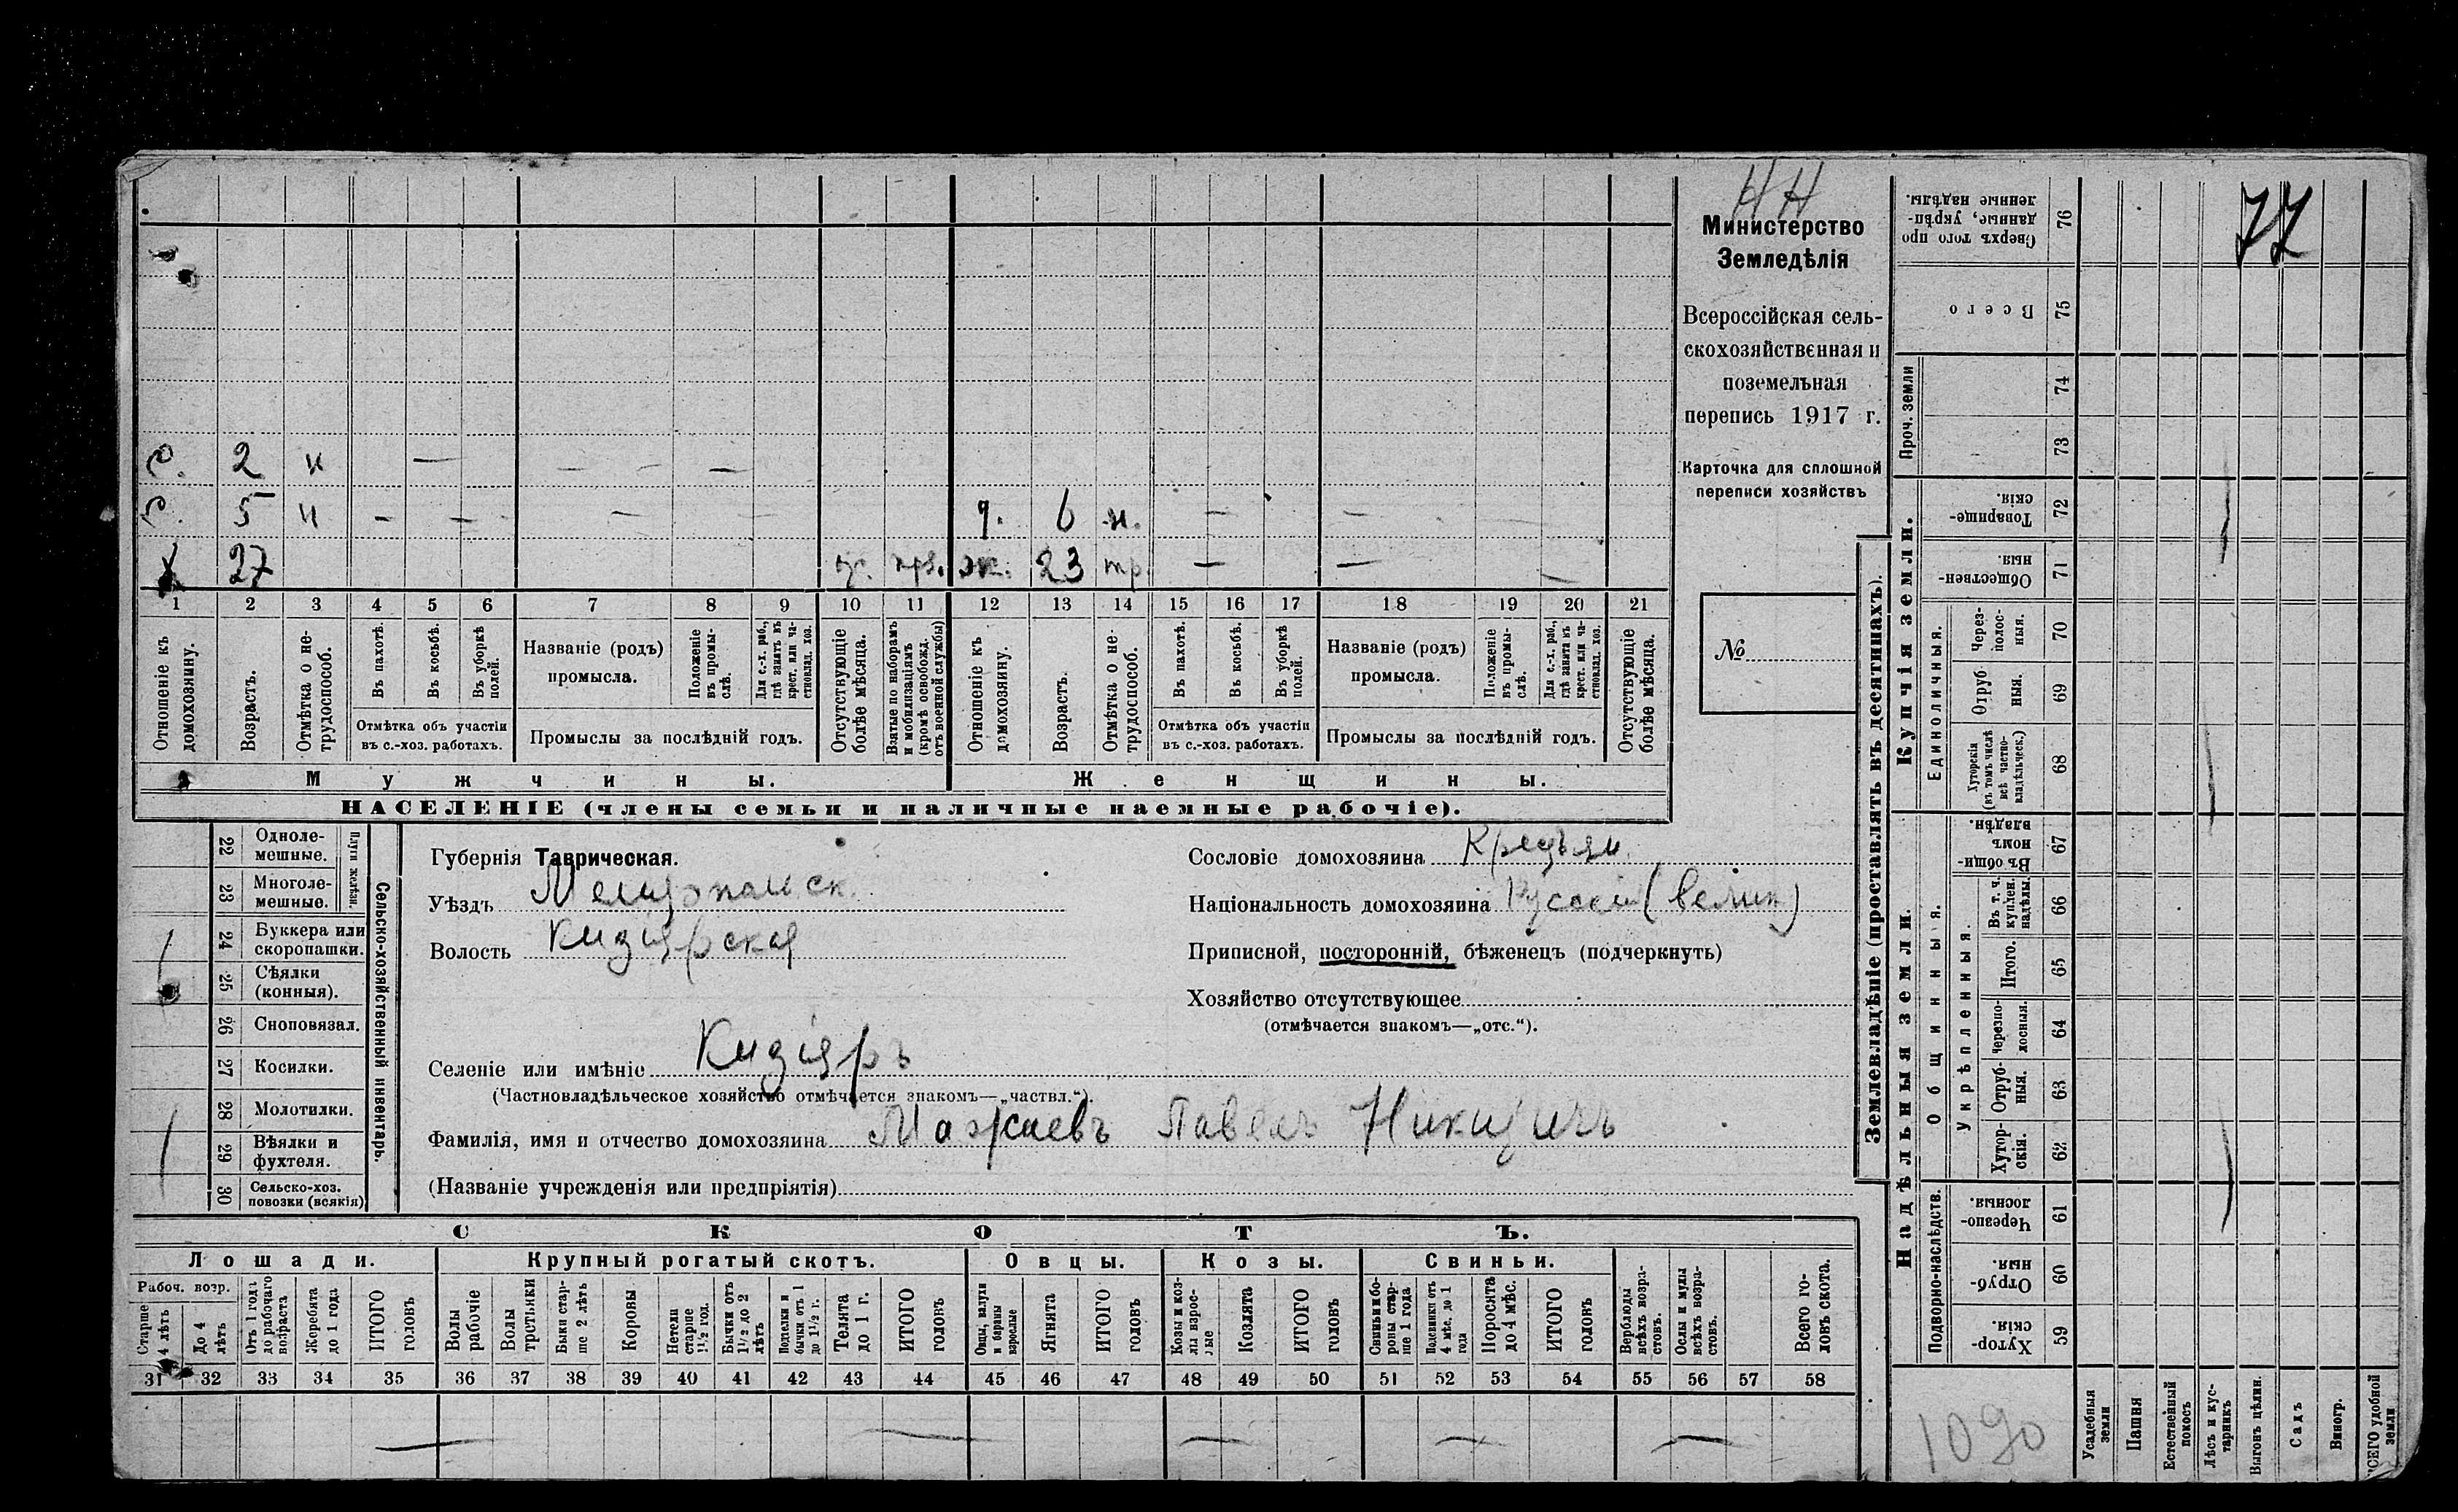 НН
77
Министерство
Земледѣлія
Всероссійская сель-
скохозяйственная и
поземельная
перепись 1917 г.
Карточка для сплошной
переписи хозяйствъ
№
с. 2 н — — — —
с. 5 н — — — — 9. 6 н. — —
х 27 — — 23 тр. — — —
1 2 3 4 5 6 7 8 9 10 11 12 13 14 15 16 17 18 19 20 21
Отношеніе къ домохозяину.
Возрастъ.
Отмѣтка о не-трудоспособ.
Въ пахотѣ.
Въ косьбѣ.
Въ уборкѣ полей.
Отмѣтка объ участіи
въ с.-хоз. работахъ.
Названіе (родъ)
промысла.
Положеніе въ промы-слѣ.
Для с.-х. раб., гдѣ занятъ въ крест. или ча-стновлад. хоз.
Промыслы за послѣдній годъ.
Отсутствующіе болѣе мѣсяца.
Взятые по наборамъ и мобилизаціямъ (кромѣ освобожд. отъ военной службы)
Отношеніе къ домохозяину.
Возрастъ.
Отмѣтка о не-трудоспособ.
Въ пахотѣ.
Въ косьбѣ.
Въ уборкѣ полей.
Отмѣтка объ участіи
въ с.-хоз. работахъ.
Названіе (родъ)
промысла.
Положеніе въ промы-слѣ.
Для с.-х. раб., гдѣ занята въ крест. или ча-стновлад. хоз.
Промыслы за послѣдній годъ.
Отсутствующіе болѣе мѣсяца.
Мужчины.
Женщины.
НАСЕЛЕНІЕ (члены семьи и наличные наемные рабочіе).
22 Одноле-
мешные.
23 Многоле-
мешные.
Плуги желѣзн.
24 Буккера или
скоропашки.
25 Сѣялки
(конныя).
26 Сноповязал.
27 Косилки.
28 Молотилки.
29 Вѣялки и
фухтеля.
30 Сельско-хоз.
повозки (всякія)
Сельско-хозяйственный инвентарь.
Губернія Таврическая.
Уѣздъ Мелитопольск.
Волость Кизіярская
Сословіе домохозяина Крестьян.
Національность домохозяина Русскій (велик)
Приписной, посторонній, бѣженецъ (подчеркнуть)
Хозяйство отсутствующее
(отмѣчается знакомъ—„отс.“).
Селеніе или имѣніе Кизіяръ
(Частновладѣльческое хозяйство отмѣчается знакомъ—„частвл.“).
Фамилія, имя и отчество домохозяина Можаевъ Павелъ Никитичъ
(Названіе учрежденія или предпріятія)
СКОТЪ.
Лошади. Крупный рогатый скотъ. Овцы. Козы. Свиньи.
Рабоч. возр.
Старше 4 лѣтъ
До 4 лѣтъ
Отъ 1 года до рабочаго возраста
Жеребята до 1 года
ИТОГО головъ
Волы рабочіе
Волы третьяки
Быки стар-ше 2 лѣтъ
Коровы
Нетели старше 1 1/2 год.
Бычки отъ 1 1/2 до 2 лѣтъ
Подтелки и бычки отъ 1 до 1 1/2 г.
Телята до 1 г.
ИТОГО головъ
Овцы, валухи и бараны взрослые
Ягнята
ИТОГО головъ
Козы и коз-лы взрос-лые
Козлята
ИТОГО головъ
Свиньи и бо-ровы стар-ше 1 года
Подсвинки отъ 4 мѣс. до 1 года
Поросята до 4 мѣс.
ИТОГО головъ
Верблюды всѣхъ возра-стовъ.
Ослы и мулы всѣхъ возра-стовъ.
Всего го-ловъ скота.
31 32 33 34 35 36 37 38 39 40 41 42 43 44 45 46 47 48 49 50 51 52 53 54 55 56 57 58
— — — — —
Землевладѣніе (проставлять въ десятинахъ).
Купчія земли.
Надѣльныя земли.
Сверхъ того про-данные, укрѣп-ленные надѣлы. 76
Всего 75
Проч. земли
74
73
Товарище-скія. 72
Обществен-ныя 71
Единоличныя.
Через-полос-ныя. 70
Отруб-ныя. 69
Хуторскія (въ томъ числѣ всѣ частно-владѣльческ.) 68
Общинныя.
Въ общин-номъ владѣн. 67
Укрѣпленныя.
Въ т. ч. куплен. надѣлы. 66
Итого. 65
Черезпо-лосныя. 64
Отруб-ныя. 63
Хутор-скія. 62
Подворно-наслѣдств.
Черезпо-лосныя 61
Отруб-ныя. 60
Хутор-скія. 59
1090
Усадебныя земли
Пашня
Естественный покосъ
Лѣсъ и кус-тарникъ
Выгонъ цѣлин.
Садъ
Виногр.
ВСЕГО удобной земли